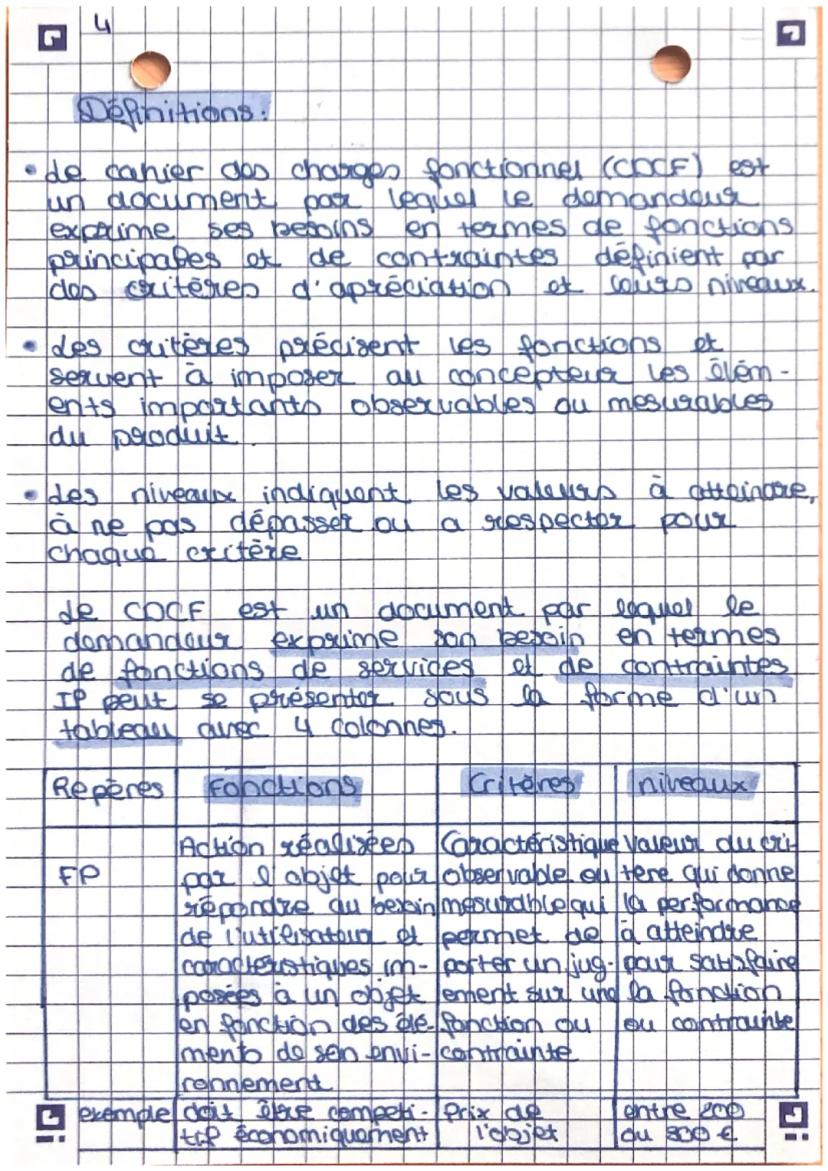 4
Définitions:
• Le cahier des charges fonctionnel (CDCF) est
un document par lequel le demandeur
exprime ses besoins en termes de fonctions
principales et de contraintes définient par
des critères d'apréciation et leurs niveaux.
• Les critères précisent les fonctions et
servent à imposer au concepteur les élém-
ents importants observables ou mesurables
du produit.
• Les niveaux indiquent les valeurs à atteindre,
à ne pas dépasser ou a respecter pour
chaque critère
Le CDCF est un document par lequel le
demandeur exprime son besoin en termes
de fonctions de services et de contraintes
Il peut se présenter sous la forme d'un
tableau avec 4 colonnes.
Repères Fonctions Critères niveaux
Action réalisées Caractéristique Valeur du cri-
FP par l'objet pour observable ou tère qui donne
répondre au besoin mesurable qui la performance
de l'utilisateur et permet de à atteindre
caractéristiques im- porter un jug- pour satisfaire
posées à un objet ement sur une la fonction
en fonction des élé- fonction ou ou contrainte
ments de son envi- contrainte
ronnement
exemple doit être competi- Prix de entre 200
tif économiquement l'objet ou 300 €